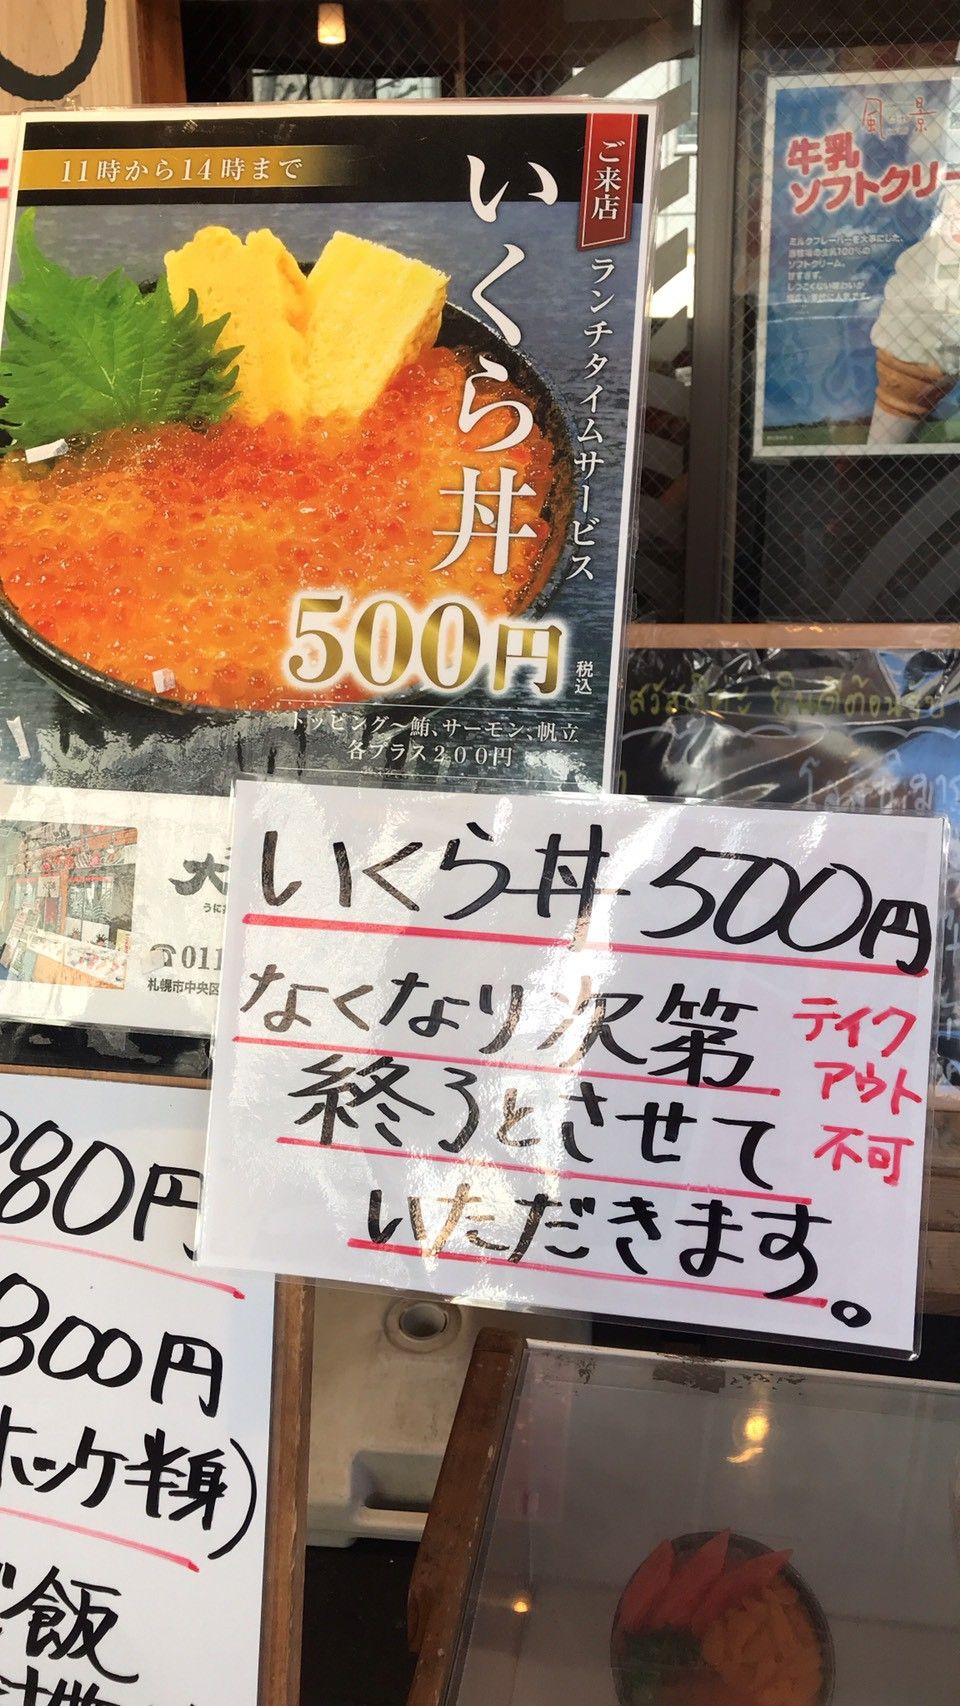 11時から14時まで
ご来店
ランチタイムサービス
いくら丼
500円
税込
トッピング〜鮪、サーモン、帆立
各プラス200円
風景
牛乳
ソフトクリー
ソフトクリーム。
สวัสดีค่ะ ยินดีต้อนรับ
大
うに
☎011
札幌市中央区
いくら丼500円
なくなり次第
終了とさせて
いただきます。
テイク
アウト
不可
80円
800円
ホッケ半身)
飯